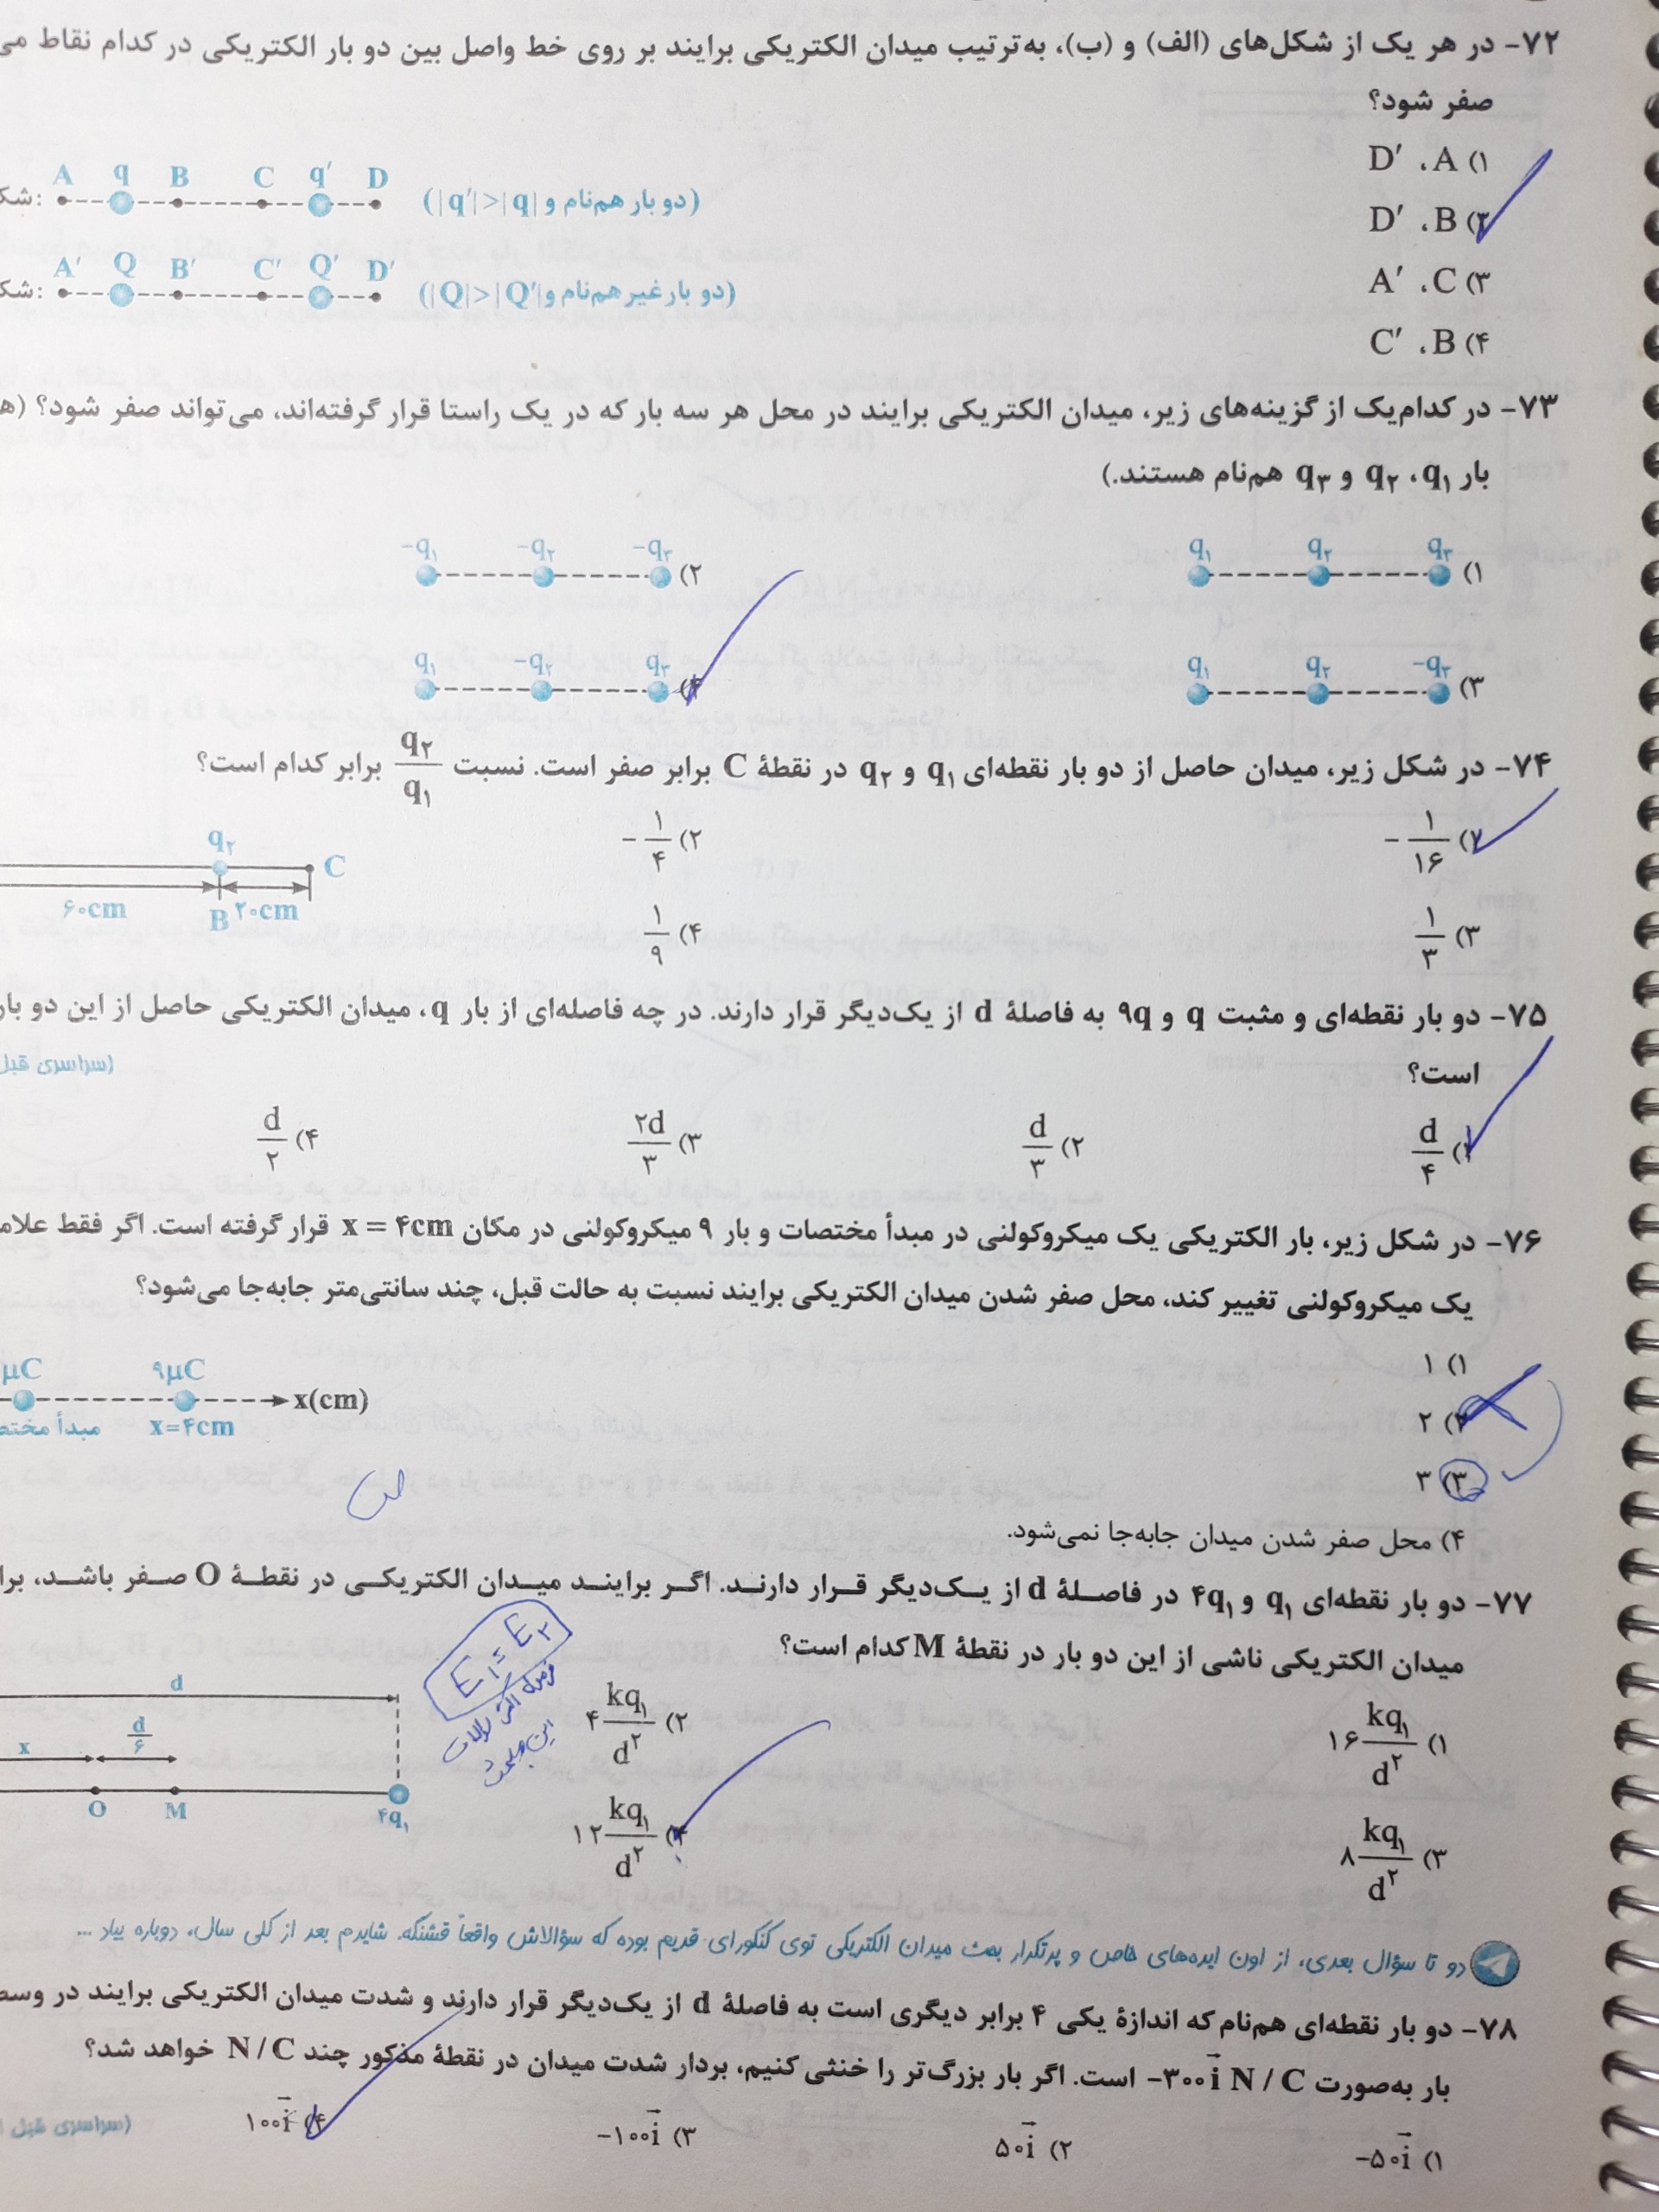 ۷۲- در هر یک از شکل‌های (الف) و (ب)، به‌ترتیب میدان الکتریکی برایند بر روی خط واصل بین دو بار الکتریکی در کدام نقاط می
صفر شود؟
۱) A، D′
۲) B، D′
۳) C، A′
۴) B، C′
A q B C q′ D
شک: (دو بار هم‌نام و |q′|>|q|)
A′ Q B′ C′ Q′ D′
شک: (دو بار غیر هم‌نام و |Q|>|Q′|)
۷۳- در کدام‌یک از گزینه‌های زیر، میدان الکتریکی برایند در محل هر سه بار که در یک راستا قرار گرفته‌اند، می‌تواند صفر شود؟ (ه
بار q₁، q₂ و q₃ هم‌نام هستند.)
۱) q₁ q₂ q₃
۲) −q₁ −q₂ −q₃
۳) q₁ q₂ −q₃
۴) q₁ −q₂ q₃
۷۴- در شکل زیر، میدان حاصل از دو بار نقطه‌ای q₁ و q₂ در نقطهٔ C برابر صفر است. نسبت q₂/q₁ برابر کدام است؟
۱) −۱/۱۶
۲) −۱/۴
۳) ۱/۳
۴) ۱/۹
q₂ C
۶۰cm B ۲۰cm
۷۵- دو بار نقطه‌ای و مثبت q و ۹q به فاصلهٔ d از یک‌دیگر قرار دارند. در چه فاصله‌ای از بار q، میدان الکتریکی حاصل از این دو بار
است؟
(سراسری قبل
۱) d/۴
۲) d/۳
۳) ۲d/۳
۴) d/۲
۷۶- در شکل زیر، بار الکتریکی یک میکروکولنی در مبدأ مختصات و بار ۹ میکروکولنی در مکان x = ۴cm قرار گرفته است. اگر فقط علام
یک میکروکولنی تغییر کند، محل صفر شدن میدان الکتریکی برایند نسبت به حالت قبل، چند سانتی‌متر جابه‌جا می‌شود؟
۱) ۱
۲) ۲
۳) ۳
۴) محل صفر شدن میدان جابه‌جا نمی‌شود.
μC ۹μC x(cm)
مبدأ مختص x=۴cm
۷۷- دو بار نقطه‌ای q₁ و ۴q₁ در فاصلهٔ d از یک‌دیگر قرار دارند. اگر برایند میدان الکتریکی در نقطهٔ O صفر باشد، برا
میدان الکتریکی ناشی از این دو بار در نقطهٔ M کدام است؟
E₁ = E₂
۱) ۱۶ kq₁/d²
۲) ۴ kq₁/d²
۳) ۸ kq₁/d²
۴) ۱۲ kq₁/d²
d
x d/۶
O M ۴q₁
دو تا سؤال بعدی، از اون ایده‌های خاص و پرتکرار بحث میدان الکتریکی توی کنکورای قدیم بوده که سؤالاش واقعاً قشنگه. شایدم بعد از کلی سال، دوباره بیاد ...
۷۸- دو بار نقطه‌ای هم‌نام که اندازهٔ یکی ۴ برابر دیگری است به فاصلهٔ d از یک‌دیگر قرار دارند و شدت میدان الکتریکی برایند در وسط
بار به‌صورت −۳۰۰i⃗ N/C است. اگر بار بزرگ‌تر را خنثی کنیم، بردار شدت میدان در نقطهٔ مذکور چند N/C خواهد شد؟
۱) −۵۰i⃗
۲) ۵۰i⃗
۳) −۱۰۰i⃗
۴) ۱۰۰i⃗
(سراسری قبل